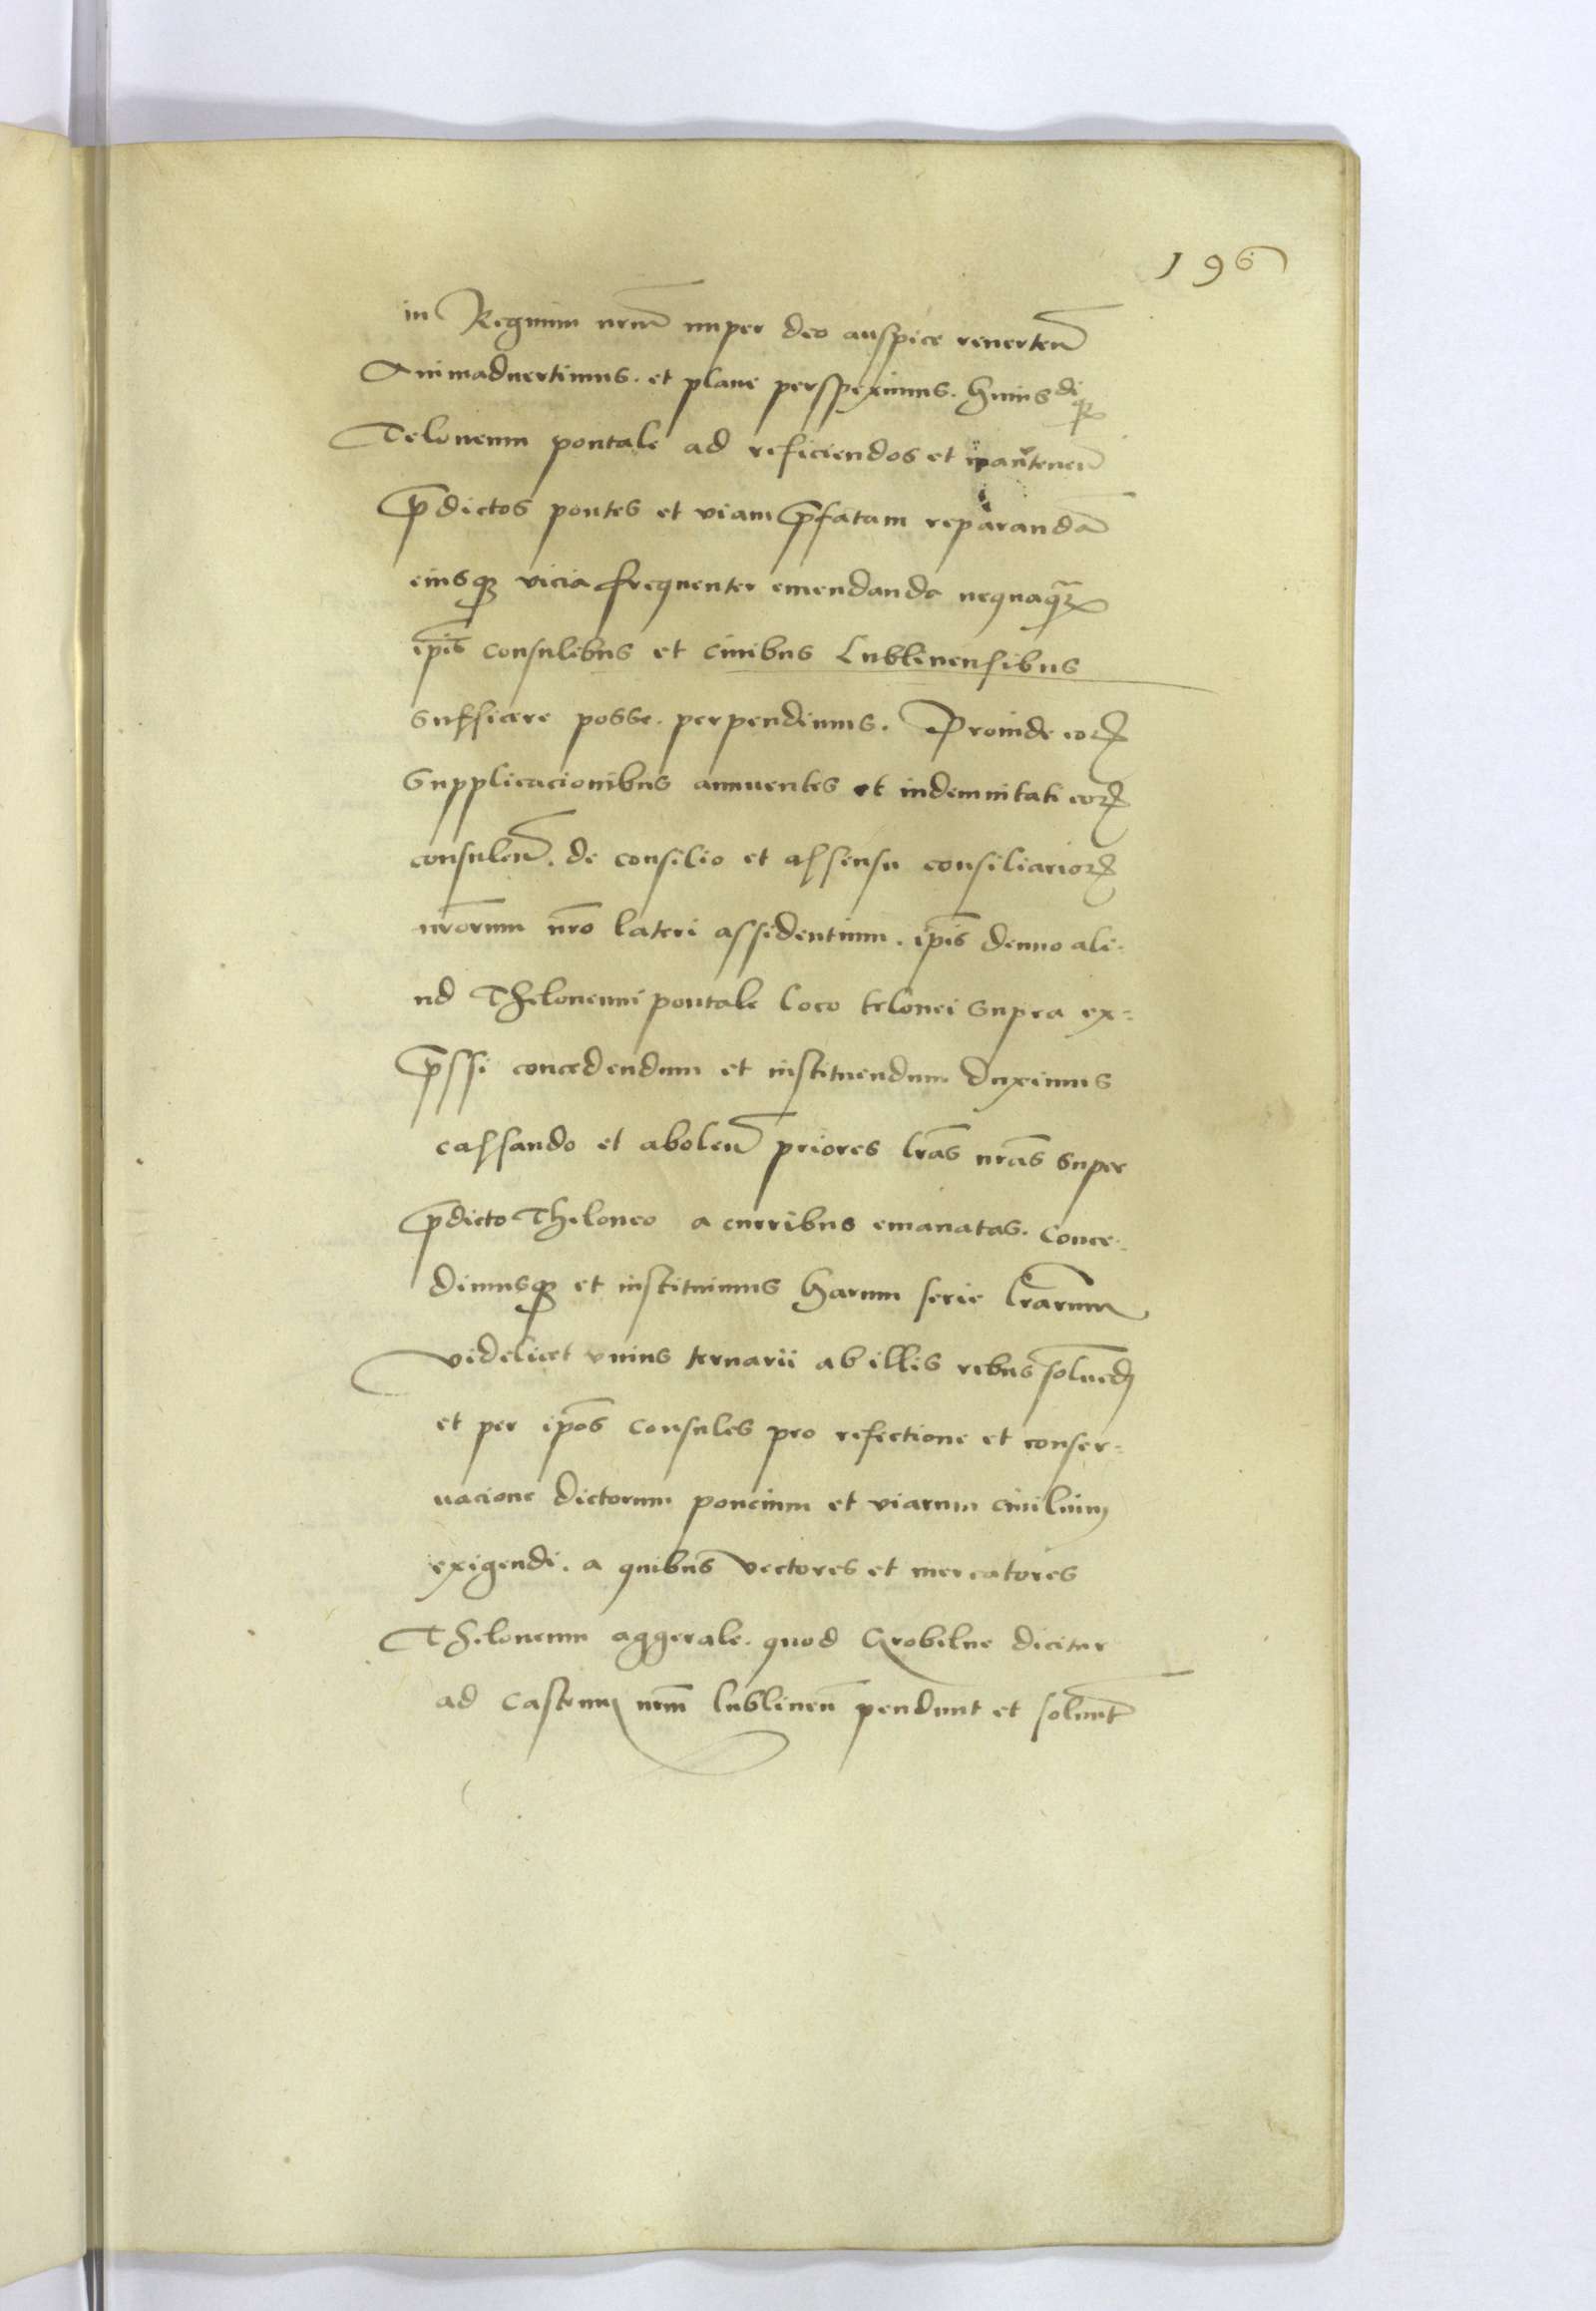 196
in Regnum nrm̄ nuper deo auspice reuerten̄
Animaduertimus. et plane perspeximus. huiusdiqꝫ
Teloneum pontale ad reficiendos et manutenen̄
p̄dictos pontes et viam p̄fatam reparandā
eiusqꝫ vicia frequenter emendanda nequaqꝫ̄
ip̄is consulibus et ciuibus Lublinensibus
sufficere posse. perpendimus. Proinde eoꝝ
Supplicacionibus annuentes et indemnitati eoꝝ
consulen̄. de consilio et assensu consiliarioꝝ
nr̄orum nr̄o lateri assidentium. ip̄is denuo ali-
ud Theloneum pontale loco telonei supra ex=
p̄ssi concedendum et instituendum duximus
cassando et abolen̄ priores lr̄as nr̄as super
p̄dicto Theloneo a curribus emanatas. Conce-
dimusqꝫ et instituimus harum serie lr̄arum
videlicet vnius ternarii ab illis rebus soluēd
et per ip̄os consules pro refectione et conser=
uacione dictorum poncium et viarum ciuilium
exigendi. a quibus vectores et mercatores
Theloneum aggerale. quod Grobelne dicitur
ad castrum nr̄m lublinen̄ pendunt et soluunt